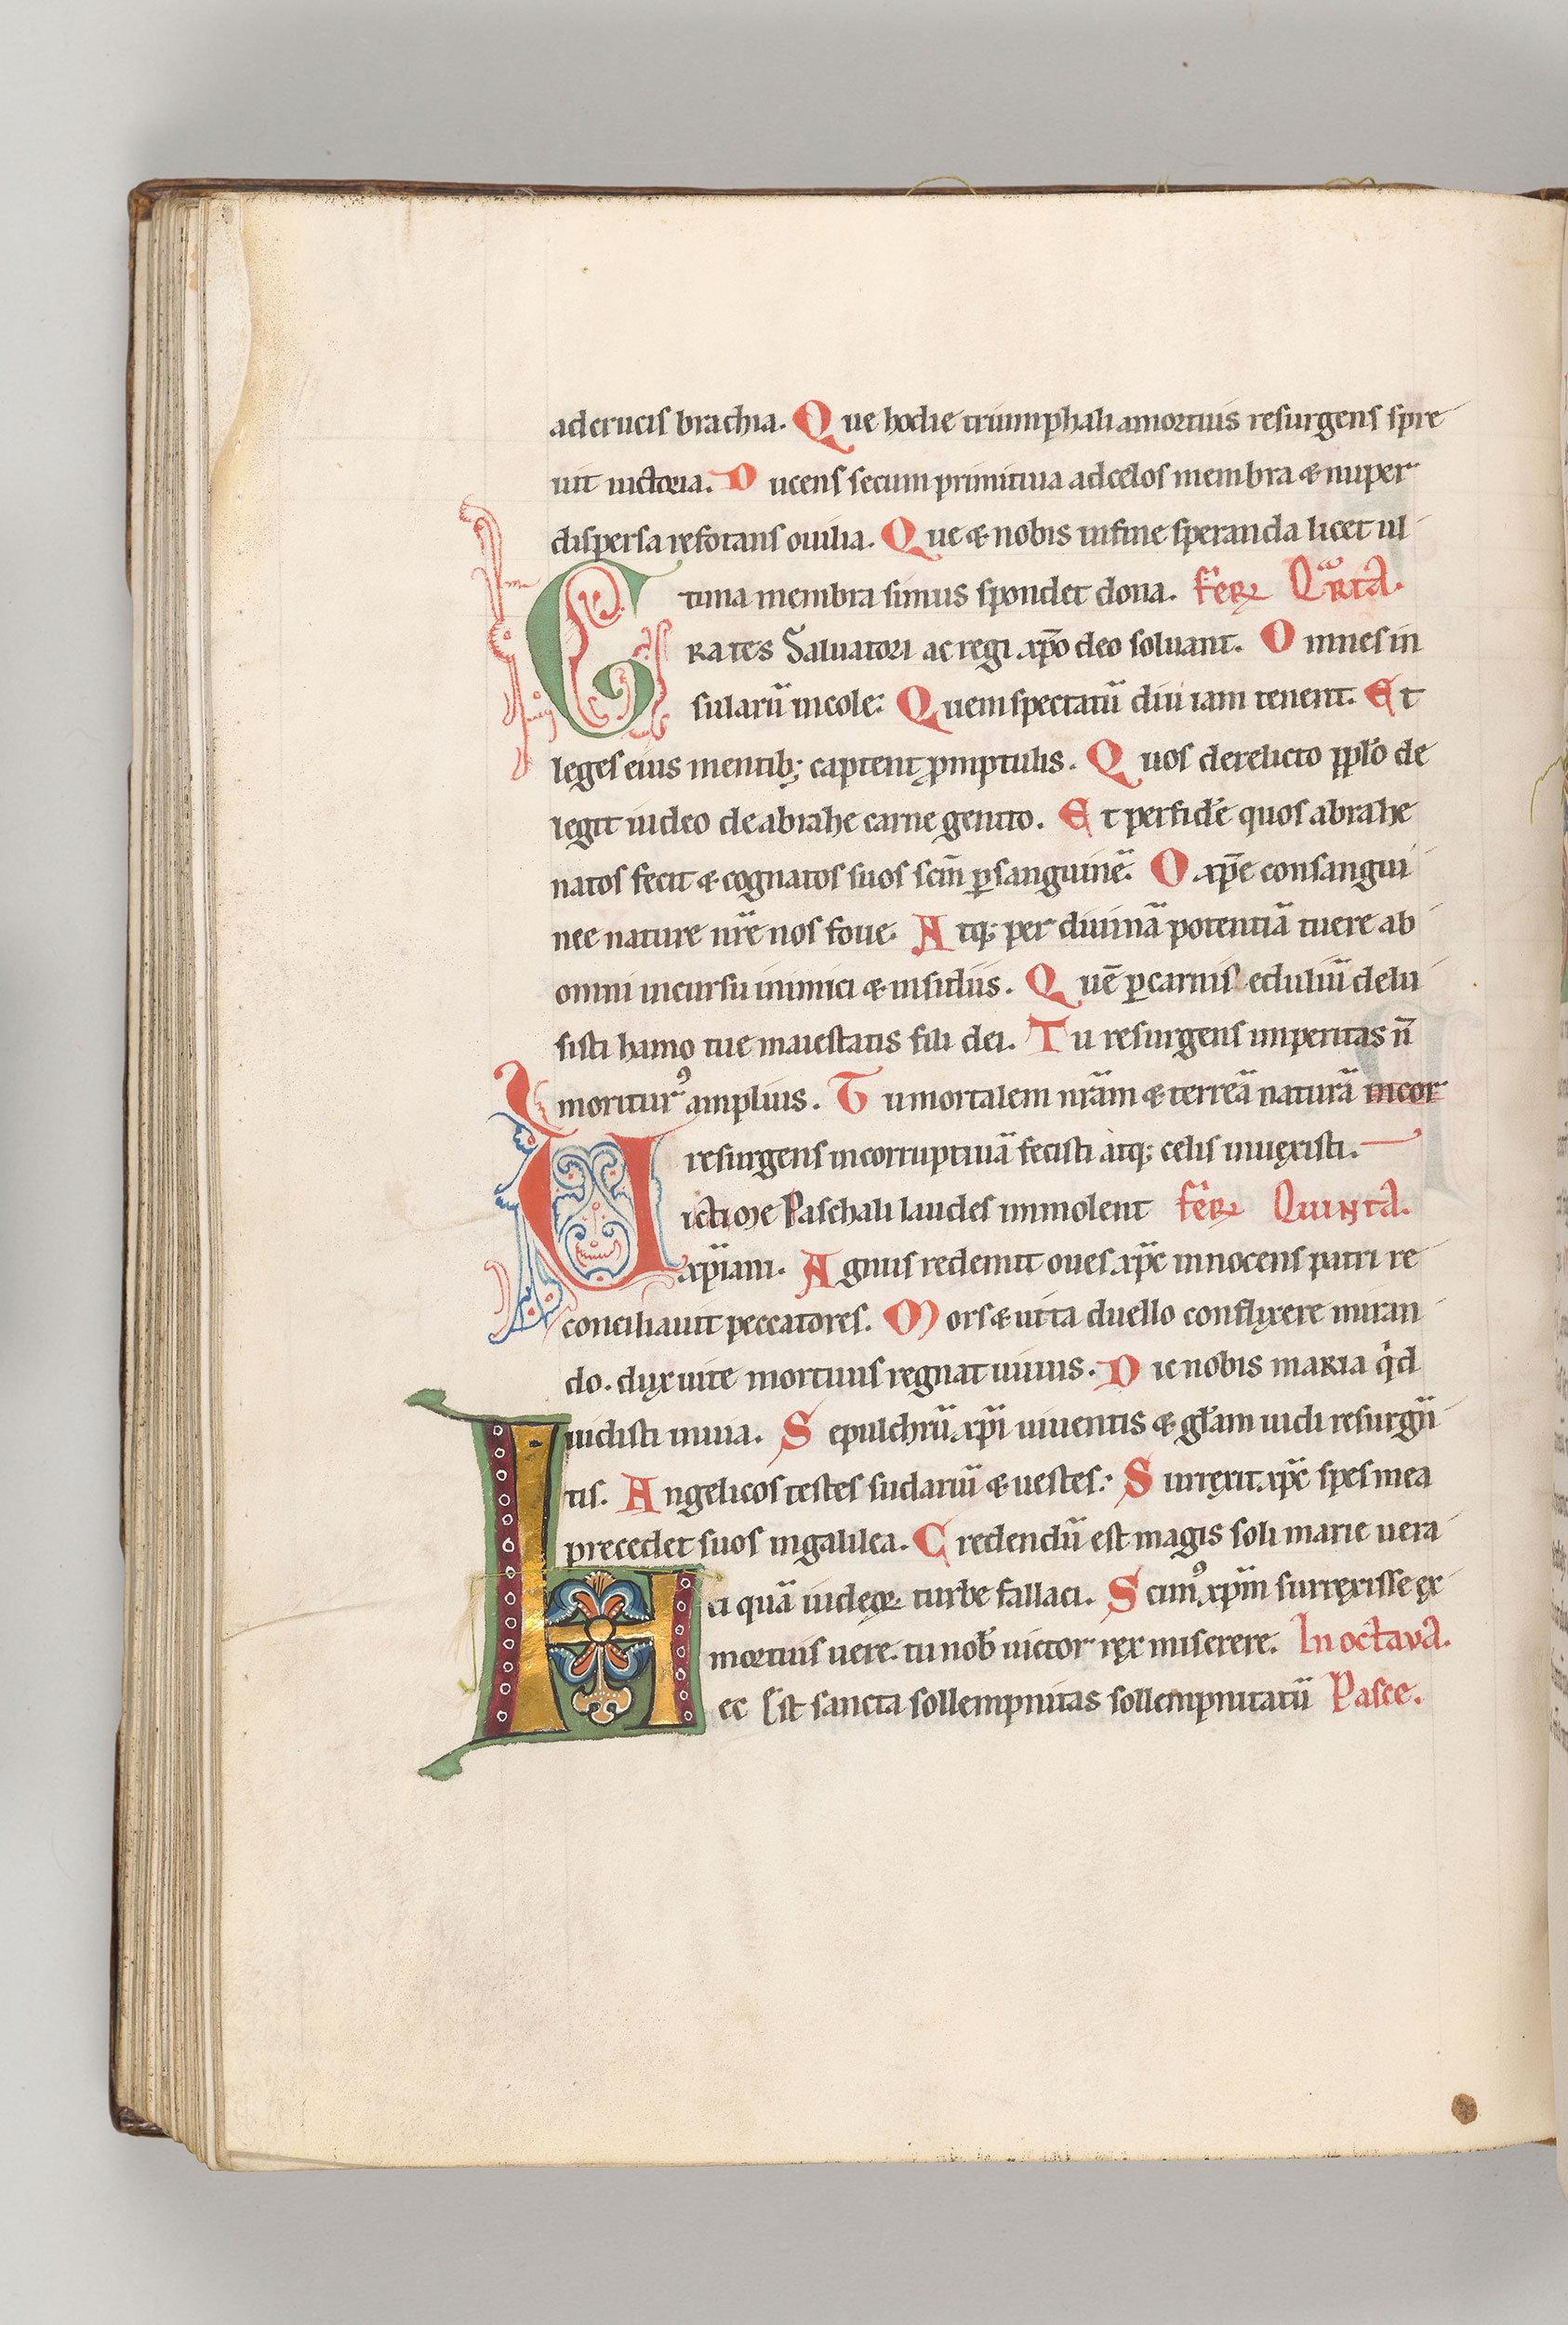 adcrucis brachia. Que hodie triumphali amortuis resurgens spre
uit uictoria. Ducens secum primitiua adcelos membra & nuper
dispersa refotans ouilia. Que & nobis infine speranda licet ul
tima membra simus spondet dona. fer̃ Qarta.
Grates Saluatori ac regi xp̄o deo soluant. Omnes in
sularū incole: Quem spectatū diu iam tenent. Et
leges eius mentib; captent p̄mptulis. Quos derelicto pp̄lo de
legit iudeo de abrahe carne genito. Et perfidē quos abrahe
natos fecit & cognatos suos scm̄ ꝑsanguinē. O xp̄e consangui
nee nature nr̄e nos foue. Atq; per diuinā potentiā tuere ab
omni incursu inimici & insidiis. Quē ꝑcarnis edulium̄ delu
sisti hamo tue maiestatis fili dei. Tu resurgens imperitas n̄
moriturꝰ amplius. Tu mortalem nr̄am & terreā naturā incor
resurgens incorruptiuā fecisti atq; celis inuexisti.
Victime Paschali laudes immolent fer̃ Quinta.
xp̄iani. Agnus redemit oues xp̄c innocens patri re
conciliauit peccatores. Mors & uita duello conflixere miran
do. dux uite mortuus regnat uiuus. Dic nobis maria qid
uidisti inuia. Sepulchrū xp̄i uiuentis & gl̄am uidi resurgn̄
tis. Angelicos testes sudariū & uestes. Surrexit xp̄c spes mea
precedet suos ingalilea. Credendū est magis soli marie uera
ci quā iudeoꝝ turbe fallaci. Scimꝰ xp̄m surrexisse ex
mortuis uere. tu nob̄ uictor rex miserere. In octava.
Hec Est sancta sollempnitas sollempnitatū Pasce.